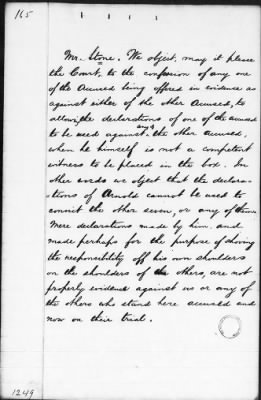 165
Mr. Stone. We object, may it please
the Court, to the confession of any one
of the Accused being offered in evidence as
against either of the other Accused, to
allowing the declarations of one of the accused
any of
to be used against the other accused,
when he himself is not a competent
witness to be placed in the box. In
other words we object that the declara-
tions of Arnold cannot be used to
convict the other seven, or any of them.
Mere declarations made by him, and
made perhaps for the purpose of shoving
the responsibility off his own shoulders
on the shoulders of the others, are not
properly evidence against us or any of
the others who stand here accused and
now on their trial.
1249